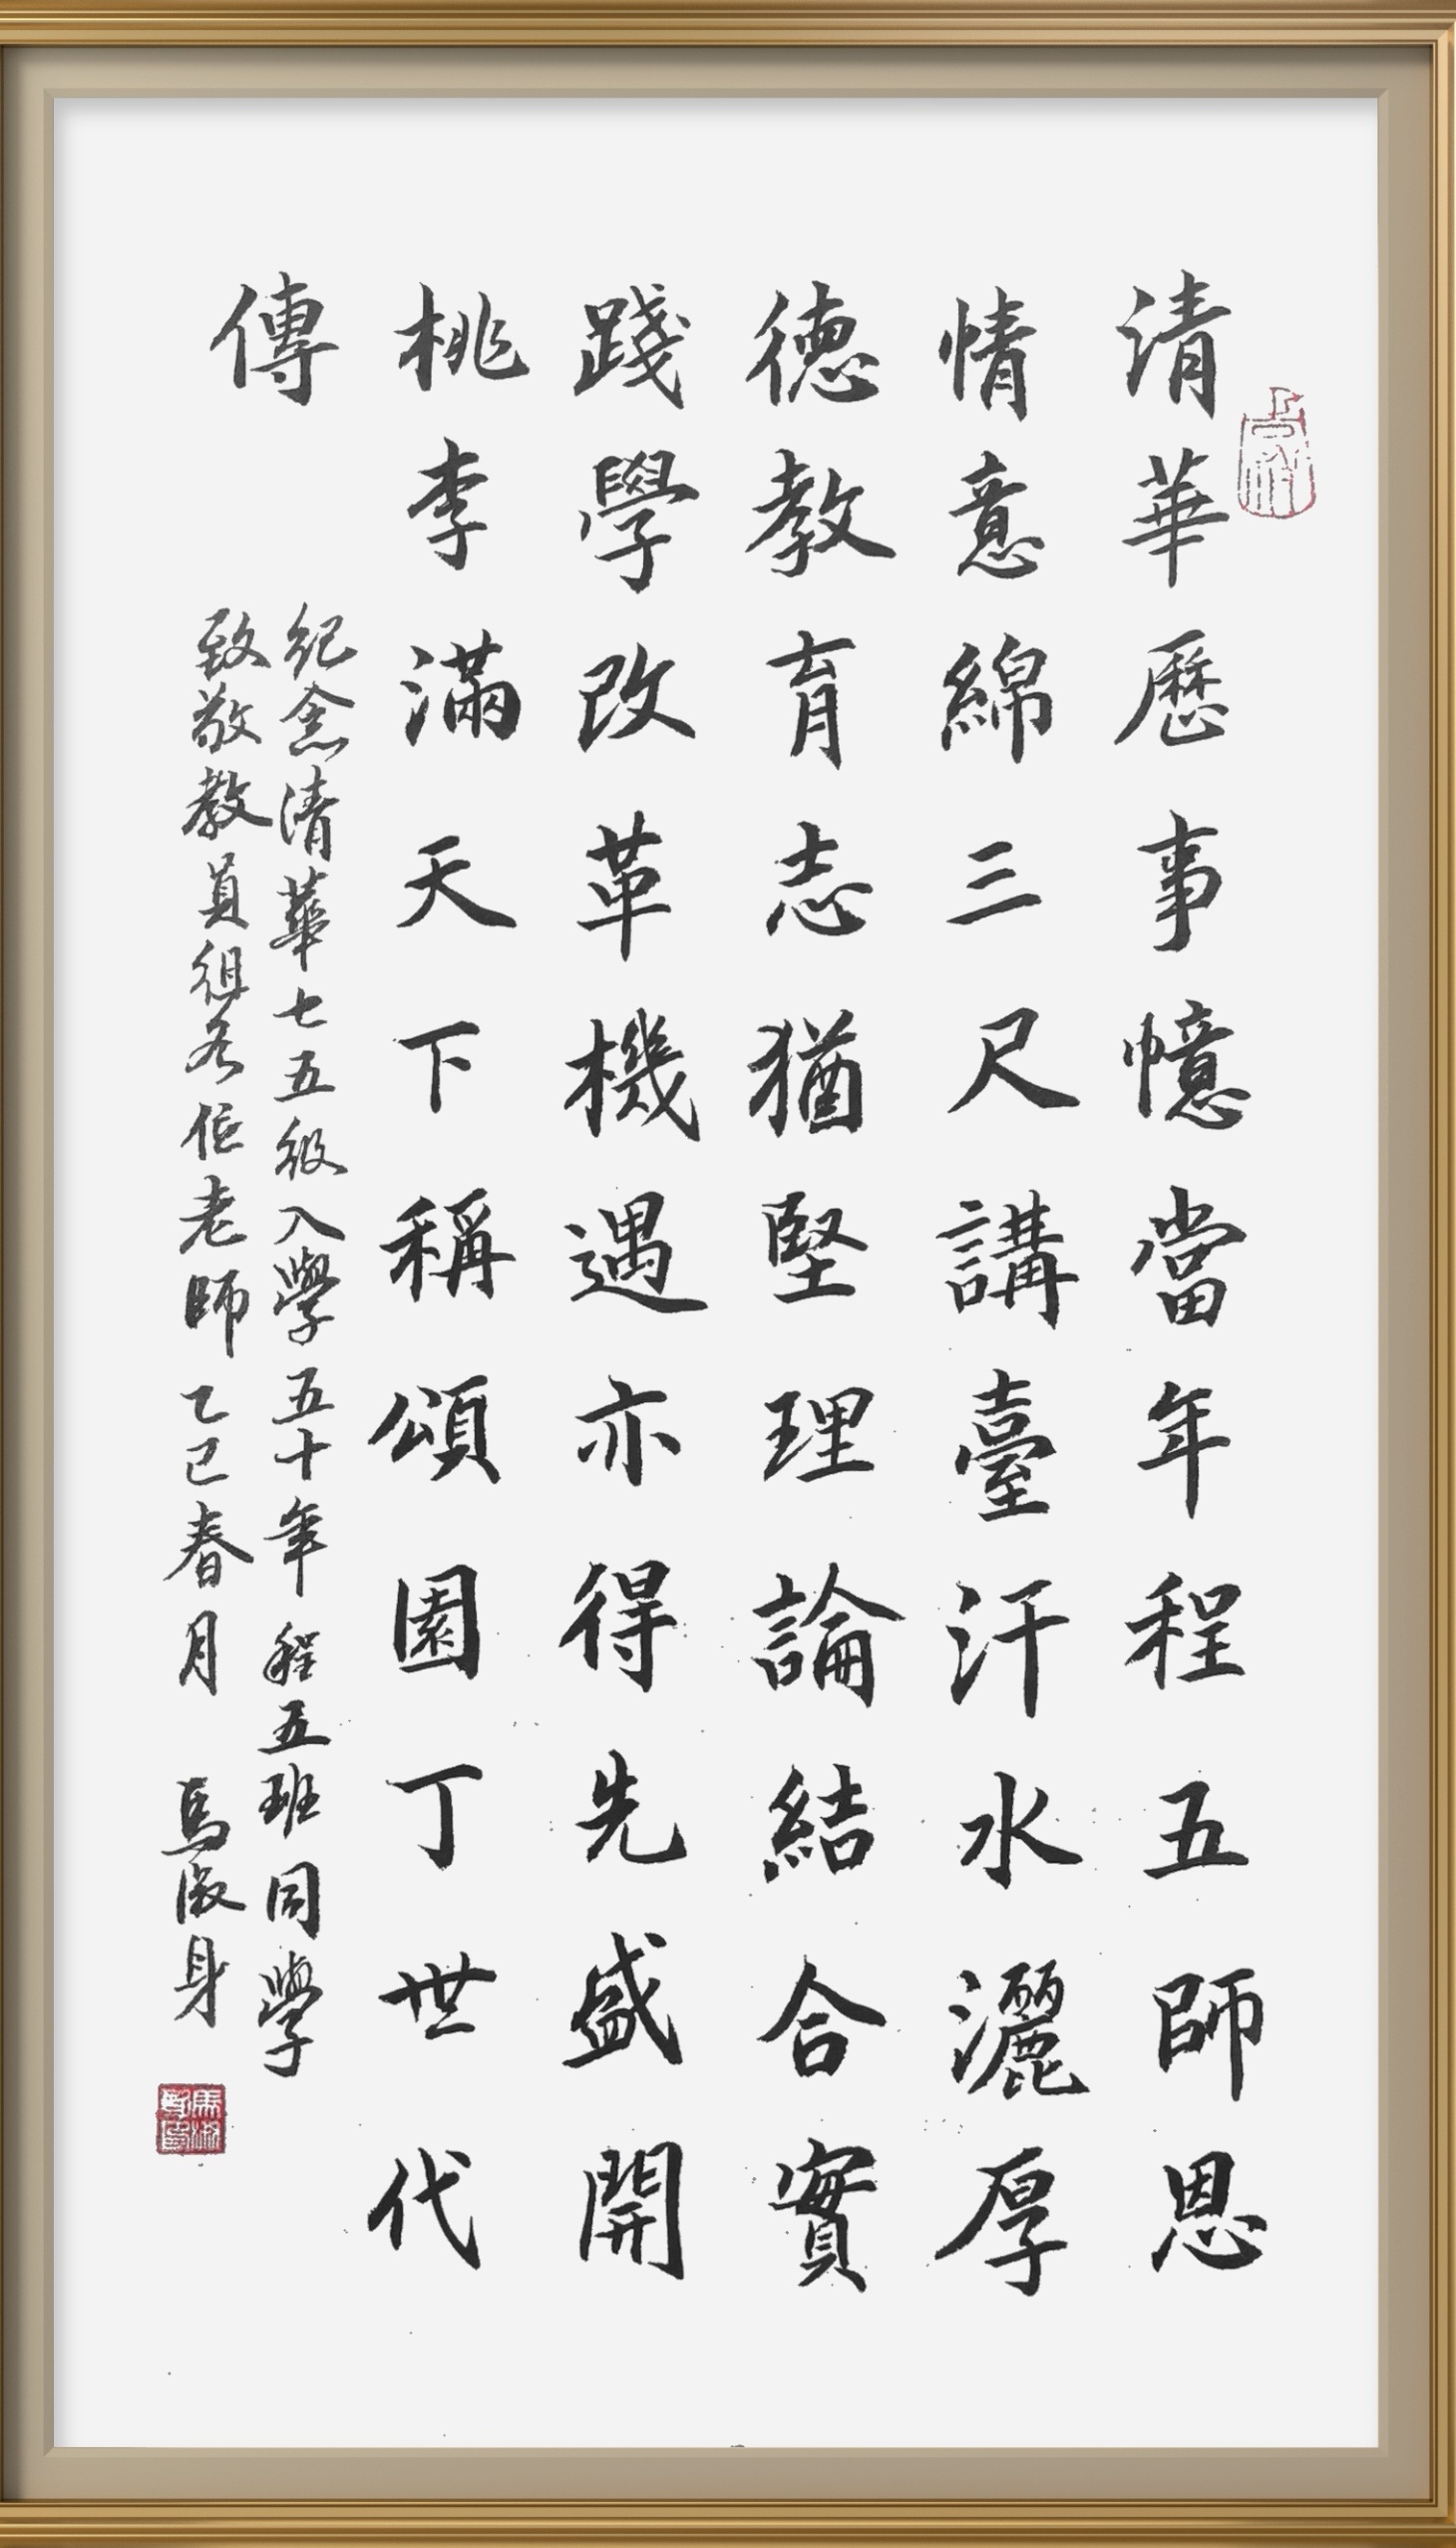 清華歷事憶當年程五師恩
情意綿三尺講臺汗水灑厚
德教育志猶堅理論結合實
踐學改革機遇亦得先盛開
桃李滿天下稱頌園丁世代
傳
紀念清華七五級入學五十年程五班同學
致敬教員組各位老師乙巳春月 馬淑身